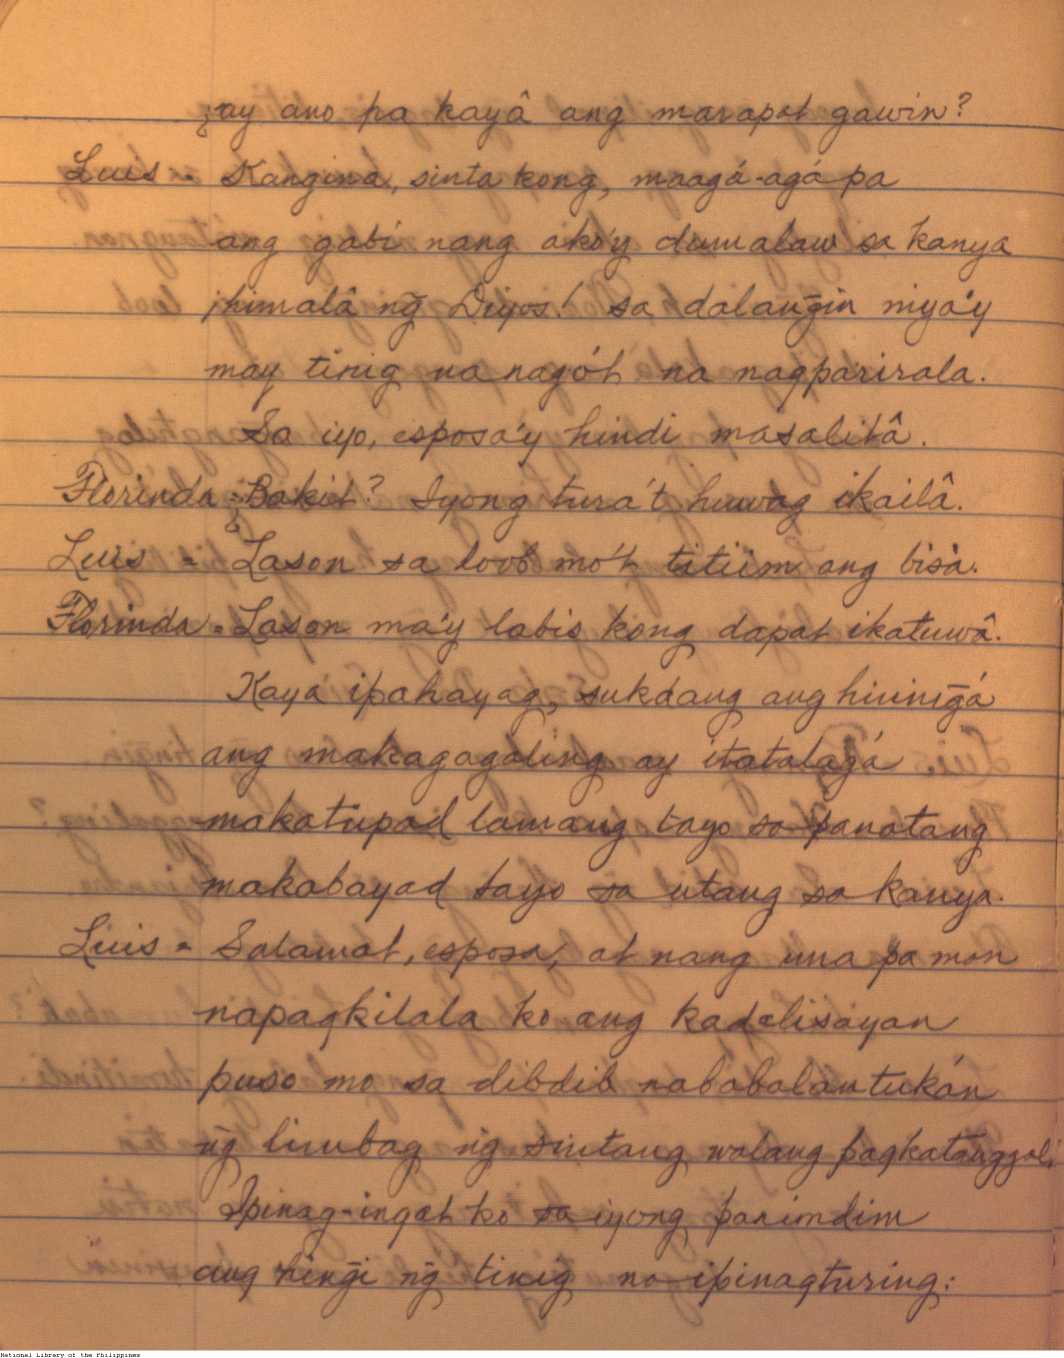 ¿ay ano pa kayâ ang marapat gawin?
Luis - Kangina, sinta kong, maagá-agá pa
ang gabi nang ako'y dumalaw sa kanya
¡himalâ ng̃ Diyos! sa dalang̃in niya'y
may tinig na nagót na nagparirala.
Sa iyo, esposa'y hindi masalitâ.
Florinda - ¿Bakit? Iyong tura't huwag ikailâ.
Luis - Lason sa loob mo't titiim ang bisà.
Florinda - Lason ma'y labis kong dapat ikatuwâ.
Kaya ipahayag, sukdang ang hining̃á
ang makagagaling ay itatalagá
makatupad lamang tayo sa panatang
makabayad tayo sa utang sa kanya.
Luis - Salamat, esposa, at nang una pa man
napagkilala ko ang kadalisayan
puso mo sa dibdib nababalantukán
ng̃ linubag ng̃ sintang walang pagkatanggal.
Ipinag-ingat ko sa iyong panimdim
ang hing̃i ng̃ tinig na ipinagturing:
National Library of the Philippines